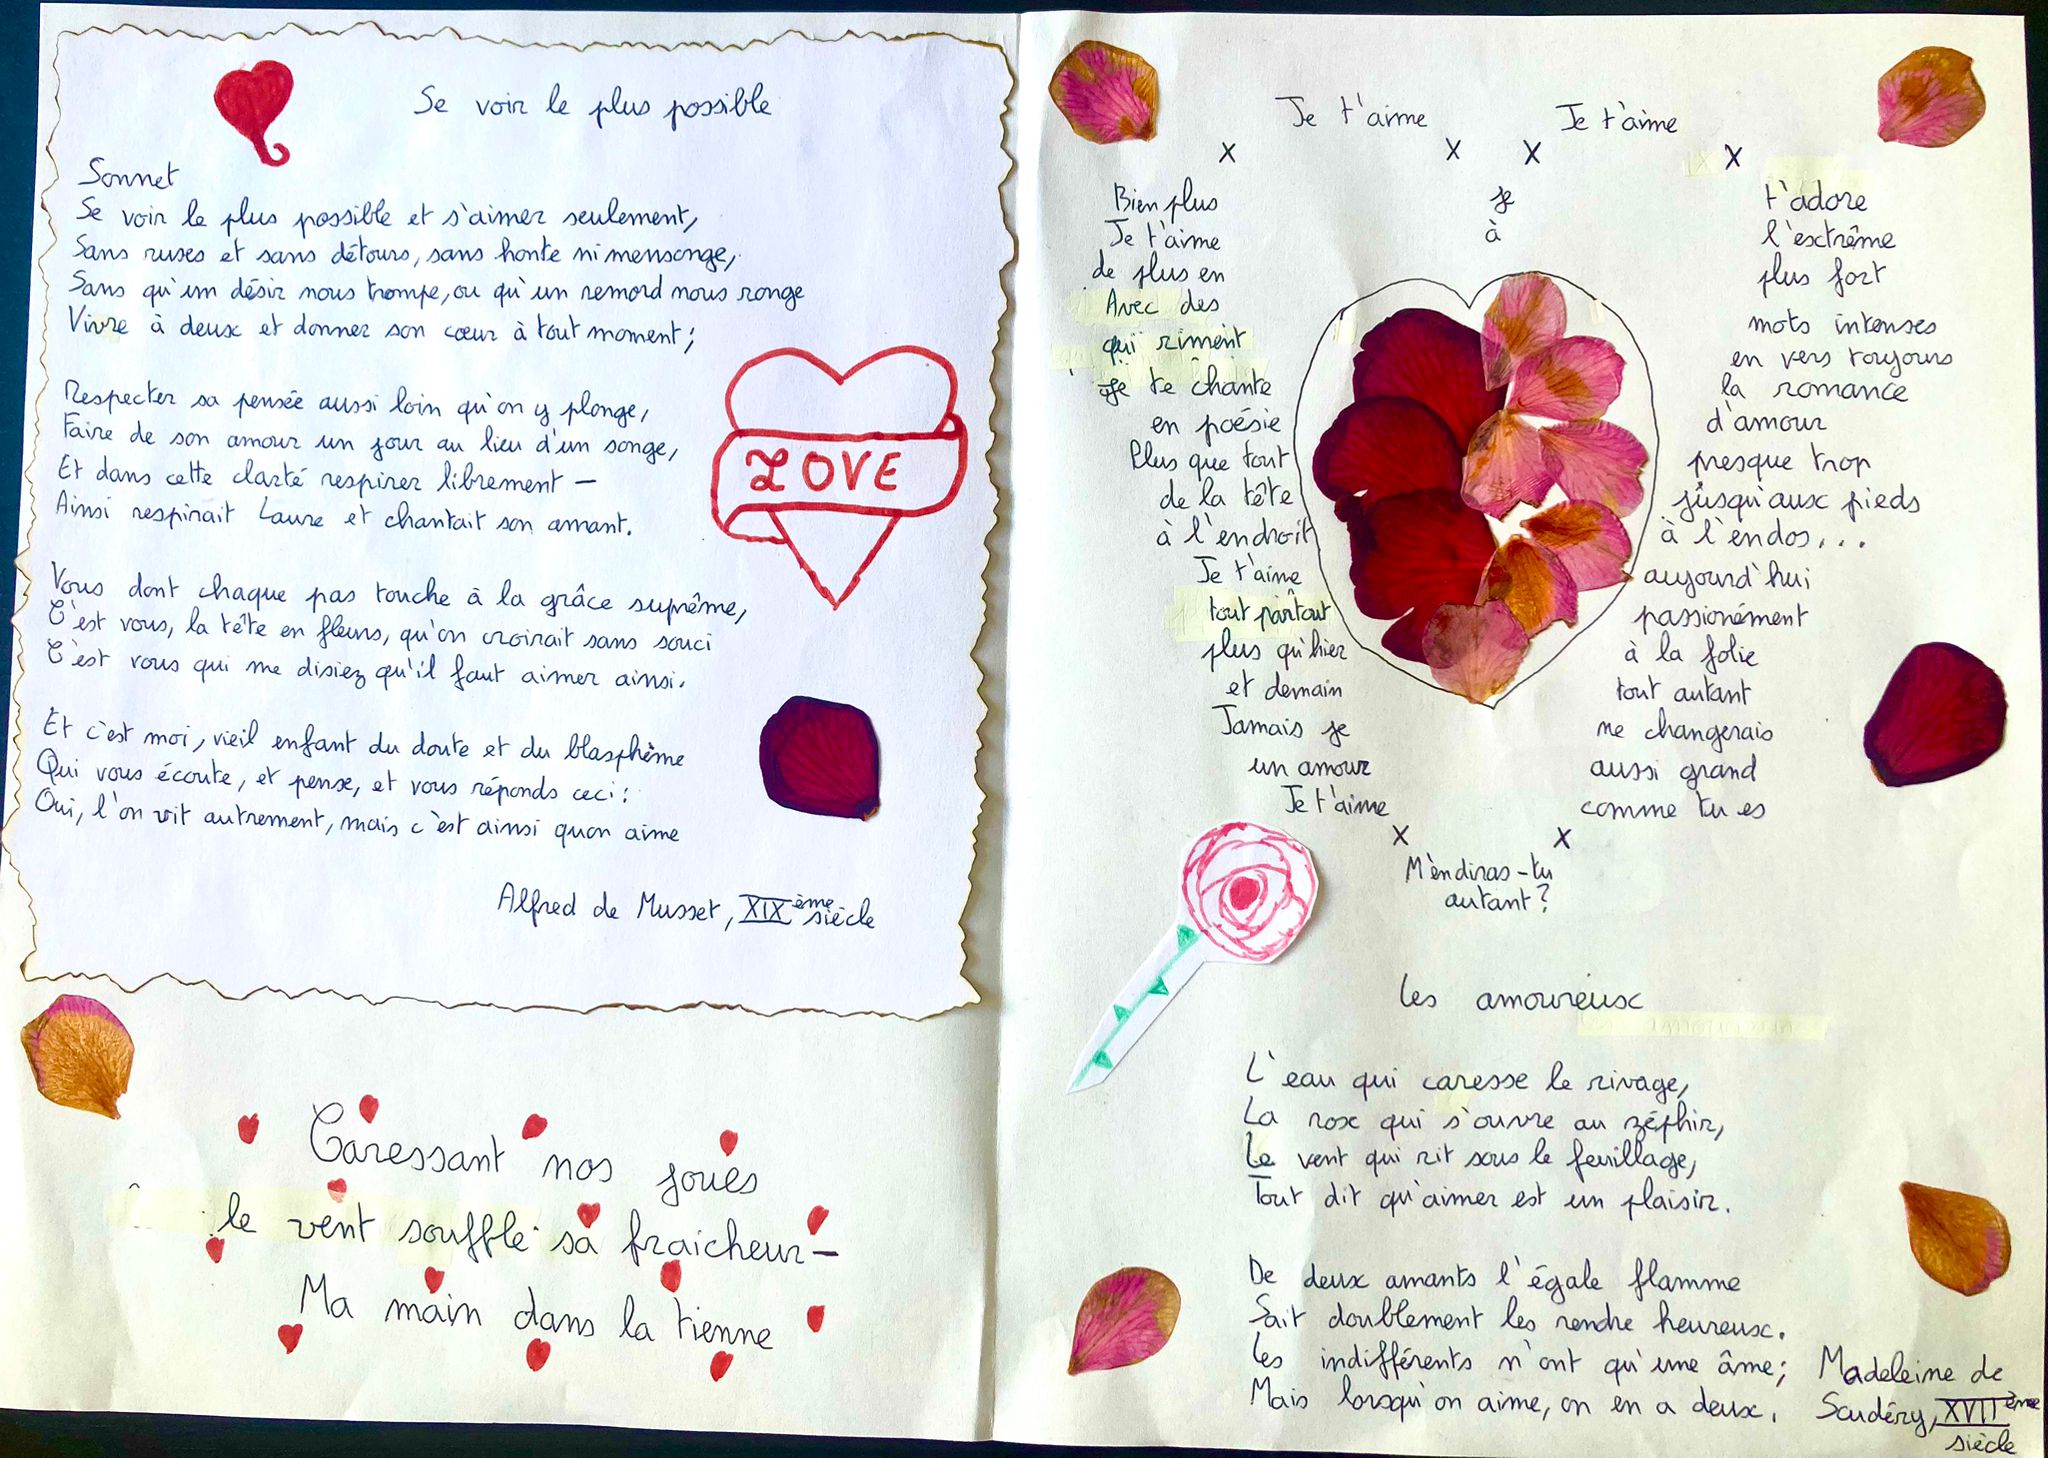 Se voir le plus possible
Sonnet
Se voir le plus possible et s'aimer seulement,
Sans ruses et sans détours, sans honte ni mensonge,
Sans qu'un désir nous trompe, ou qu'un remord nous ronge
Vivre à deux et donner son cœur à tout moment;
Respecter sa pensée aussi loin qu'on y plonge,
Faire de son amour un jour au lieu d'un songe,
Et dans cette clarté respirer librement –
Ainsi respirait Laure et chantait son amant.
LOVE
Vous dont chaque pas touche à la grâce suprême,
C'est vous, la tête en fleurs, qu'on croirait sans souci
C'est vous qui me disiez qu'il faut aimer ainsi.
Et c'est moi, vieil enfant du doute et du blasphème
Qui vous écoute, et pense, et vous réponds ceci:
Oui, l'on vit autrement, mais c'est ainsi quon aime
Alfred de Musset, XIXème siècle
Caressant nos joues
le vent souffle sa fraicheur –
Ma main dans la tienne
Je t'aime Je t'aime
X X X X
Bien plus je t'adore
Je t'aime à l'extrême
de plus en plus fort
Avec des mots intenses
qui riment en vers toujours
Je te chante la romance
en poésie d'amour
Plus que tout presque trop
de la tête jusqu'aux pieds
à l'endroit à l'endos...
Je t'aime aujourd'hui
tout partout passionément
plus qu'hier à la folie
et demain tout autant
Jamais je ne changerais
un amour aussi grand
Je t'aime comme tu es
X X
M'èndiras-tu
autant?
Les amoureux
L'eau qui caresse le rivage,
La rose qui s'ouvre au zéphir,
Le vent qui rit sous le feuillage,
Tout dit qu'aimer est un plaisir.
De deux amants l'égale flamme
Sait doublement les rendre heureux.
Les indifférents n'ont qu'une âme;
Mais lorsqu'on aime, on en a deux.
Madeleine de
Scudéry, XVIIème
siècle